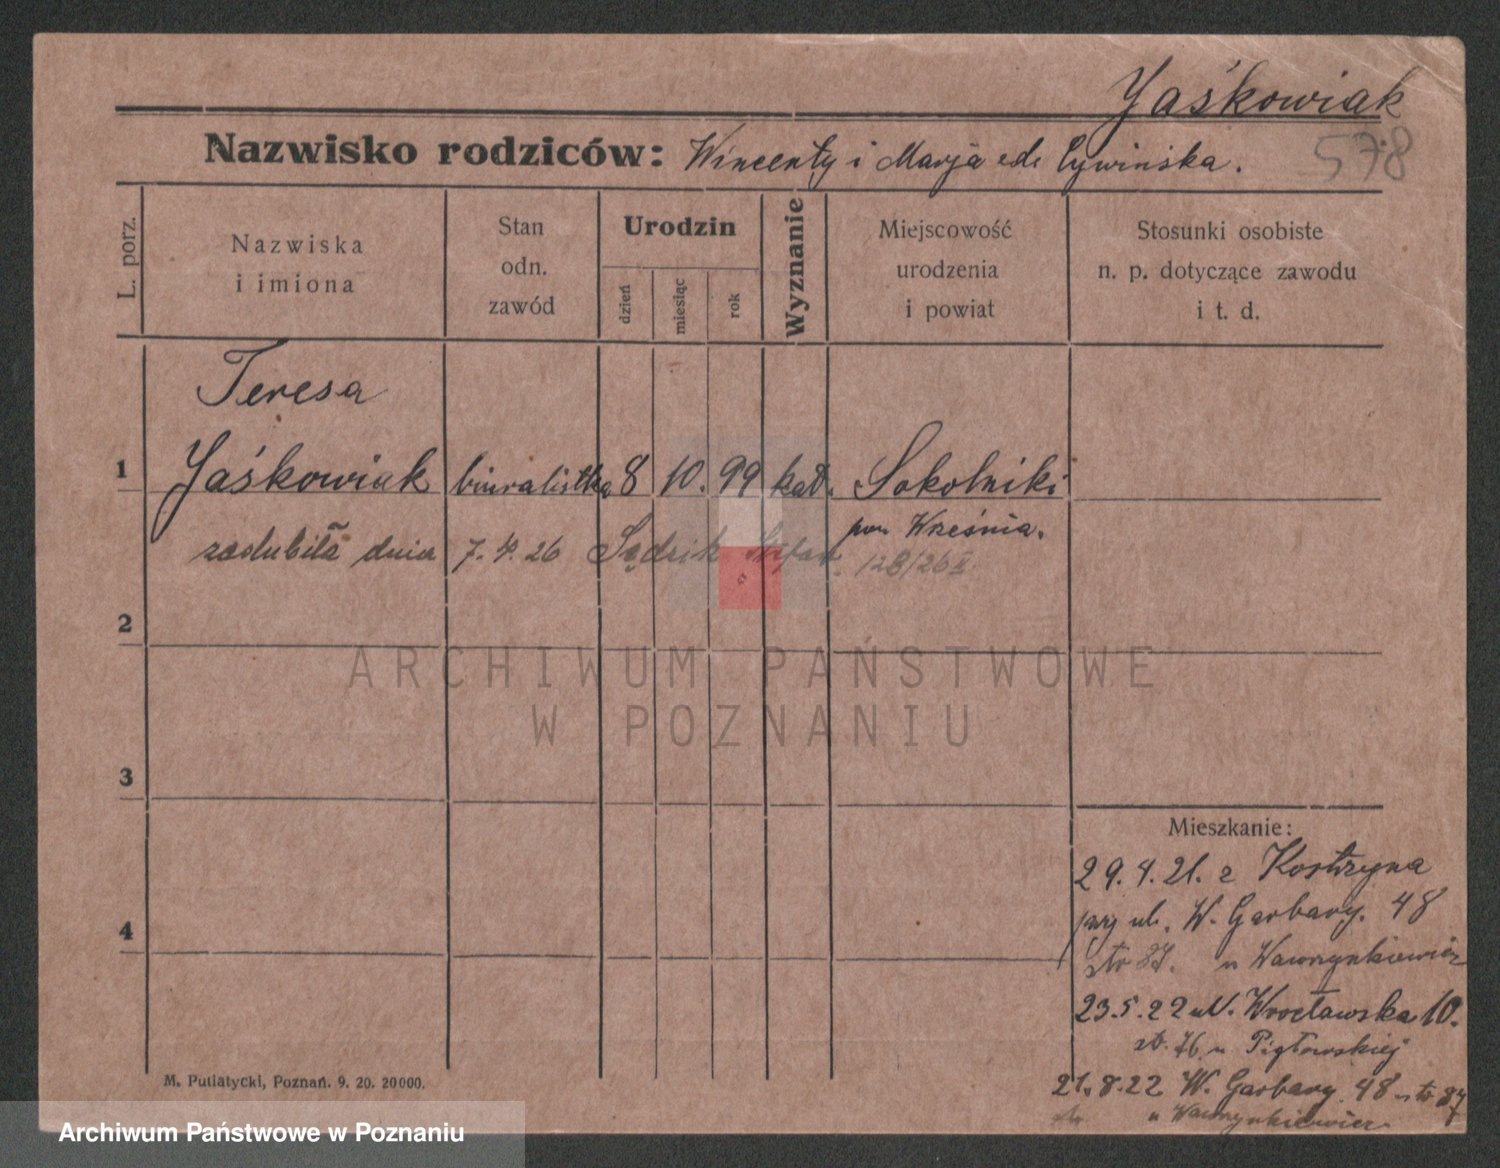 Jaśkowiak
578
Nazwisko rodziców: Wincenty i Marja Cywińska.
L. porz.
Nazwiska
i imiona
Stan
odn.
zawód
Urodzin
dzień
miesiąc
rok
Wyznanie
Miejscowość
urodzenia
i powiat
Stosunki osobiste
n. p. dotyczące zawodu
i t. d.
Teresa
1 Jaśkowiak biuralistka 8 10. 99 kat. Sokolniki
pow. Września.
dnia 7. 4. 26 128/26
2
ARCHIWUM PAŃSTWOWE
W POZNANIU
3
Mieszkanie:
29. 4. 21. z Kostrzyna
ul. W. Garbary. 48
str 87. u Wawrzynkiewicz
4
23. 5. 22 ul. Wrocławska 10.
st. 76 u Piątowskiej
21. 8. 22 W. Garbary 48 str 87
u Wawrzynkiewicz
M. Putiatycki, Poznań. 9. 20. 20000.
Archiwum Państwowe w Poznaniu